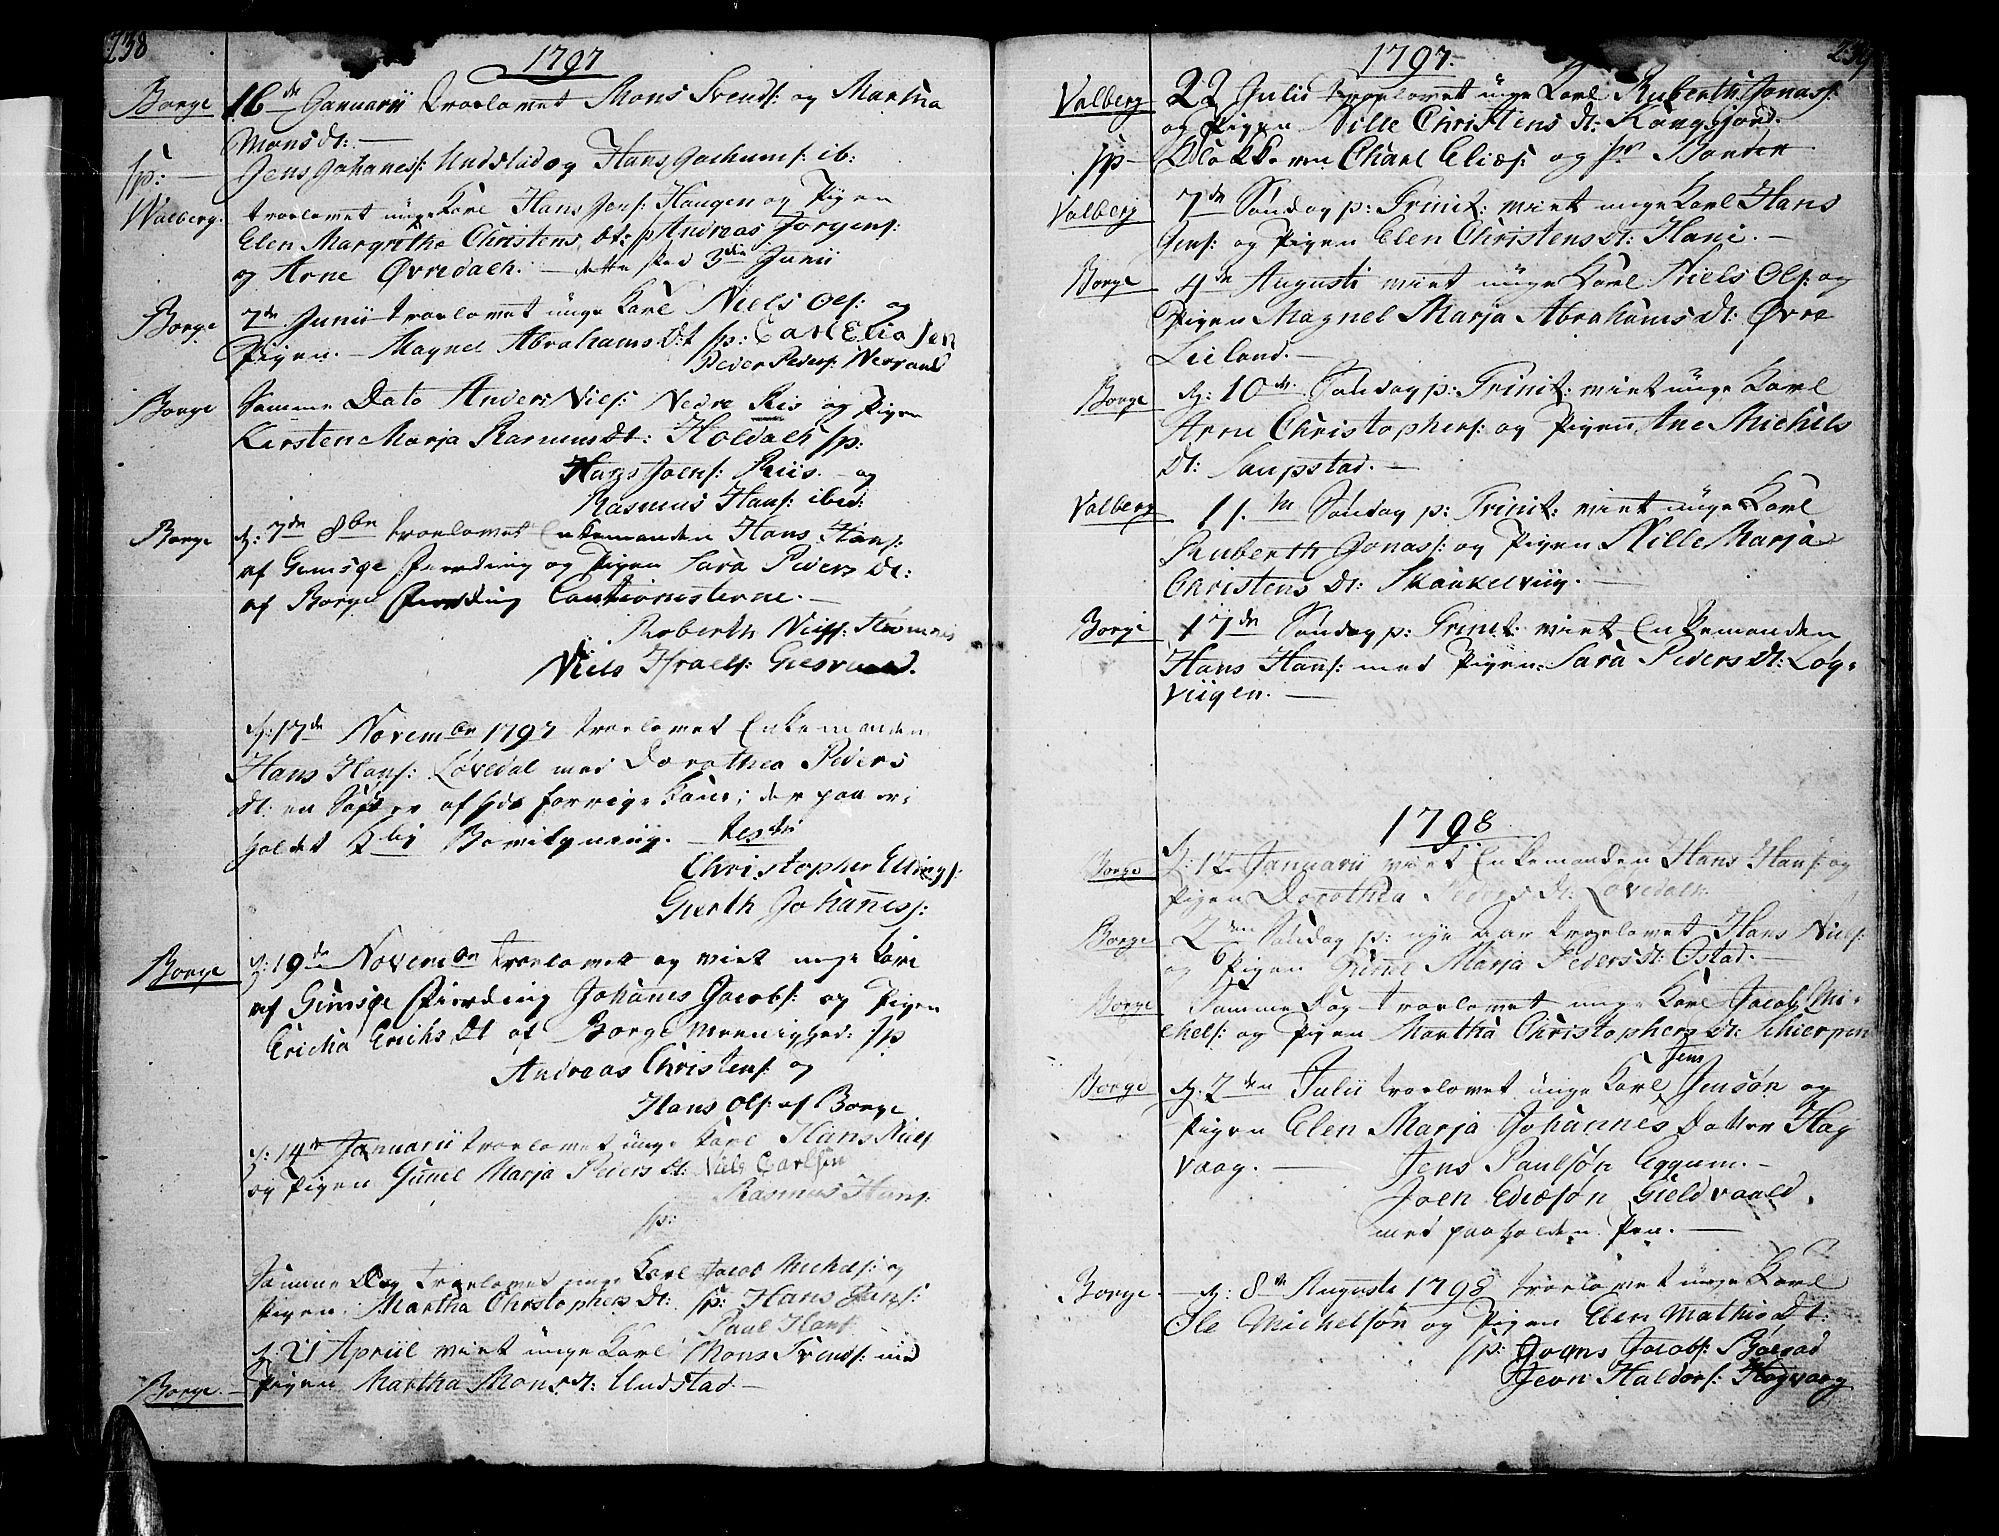 238
1797
Borge 16de Januarii trolovet Mons Svends: og Martha
Monsdt:
sp: Jens Johanes: Undstad og Hans Jochums: ib:
Walberg. trolovet unge Karl Hans Jens: Haugen og Pigen
Elen Margrethe Christens dt: sp Andreas Jorgens:
og Arne Øvredalen. dette sked 3die Junii
Borge 7de Junii trolovet unge Karl Niels Ols: og
Pigen Magnel Abrahams Dt sp:
Peder Peders:
Borge Samme Dato Anders Niels: Nedre Riis og Pigen
Kirsten Marja Rasmus Dt: Holdalen sp:
Hans Joens: Riis og
Rasmus Hans: ibid:
Borge d: 7de 8br trolovet Enkemanden Hans Hans:
af Gimsøe Fierding og Pigen Sara Peders Dt:
af Borge Fierding Cautionisterne.
Roberth Niels:
Niels Israels:
d: 17de Novembr 1797 trolovet Enkemanden
Hans Hans: Løvedal med Dorothea Peders
Dt: en Søster af hds forrige Kone; der paa er-
holdet Kl. Bevilgning. testes
Christopher Ellings:
Gierth Johannes:
Borge d: 19de Novembr trolovet og viet unge Karl
af Gimsøe Fierding Johanes Jacobs: og Pigen
Ericha Erichs Dt af Borge Meenighed: sp
Andreas Christens: og
Hans Ols: af Borge
d: 14de Januarii trolovet unge Karl Hans Niels
og Pigen Gunel Marja Peders Dt: Niels Carlsen
Rasmus Hans:
sp:
Samme Dag trolovet unge Karl Jacob Michels: og
Pigen Martha Christophers Dt: sp: Hans Jens:
Paul Hans:
d: 21 Apriil viet unge Karl Mons Svends: med
Borge. Pigen Martha Monsdt: Undstad
239
1797.
Valberg 22 Julii trolovet unge Karl Ruberth Jonas:
og Pigen Nille Christens dt: Kongsjord.
sp Klokkeren Charl Elias: og Sr
Valberg 7de Søndag p: Trinit: viet unge Karl Hans
Jens: og Pigen Elen Christensdt: Hani.
Borge 4de Augusti viet unge Karl Niels Ols: og
Pigen Magnel Marja Abrahams dt: Øvre
Leiland.
Borge d: 10de Søndag p: Trinit: viet unge Karl
Arne Christophers: og Pigen Ane Michels
dt: Saupstad.
Valberg 11te Søndag p: Trinit: viet unge Karl
Ruberth Jonas: og Pigen Nille Marja
Christens Dt: Skankelviig.
Borge 17de Søndag p: Trinit: viet Enkemanden
Hans Hans: med Pigen Sara Peders Dt: Løg-
viigen.
1798
Borge d: 12 Januarii viet Enkemanden Hans Hans: og
Pigen Dorothea Peders dt: Løvedalen.
Borge 2den Søndag p: nye Aar trolovet Hans Niels:
og Pigen Gunel Marja Peders dt: Ostad.
Borge Samme Dag trolovet unge Karl Jacob Mi-
chels: og Pigen Martha Christophers Dt: Schierpen
Jens
Borge d: 2den Julii trolovet unge Karl Jensøn og
Pigen Elen Marja Johannes Datter Hag
vaag.
Jens Paulsøn Eggum.
Joen Ediesøn
med paaholden Pen.
Borge. d: 8de Augusti 1798 trolovet unge Karl
Ole Michelsøn og Pigen Elen Mathis Dt:
sp: Joans Jacobs: Bøestad
Jeon Haldors: Hagvaag